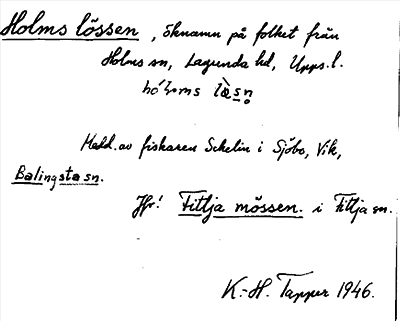 Holms lössen, öknamn på folket från
Holms sn, Lagunda hd, Upps.l.
hó'lms lὰsn̥
Medd. av fiskaren Schelin i Sjöbo, Vik,
Balingsta sn.
Jfr! Fittja mössen. i Fittja sn.
K.-H. Tapper 1946.